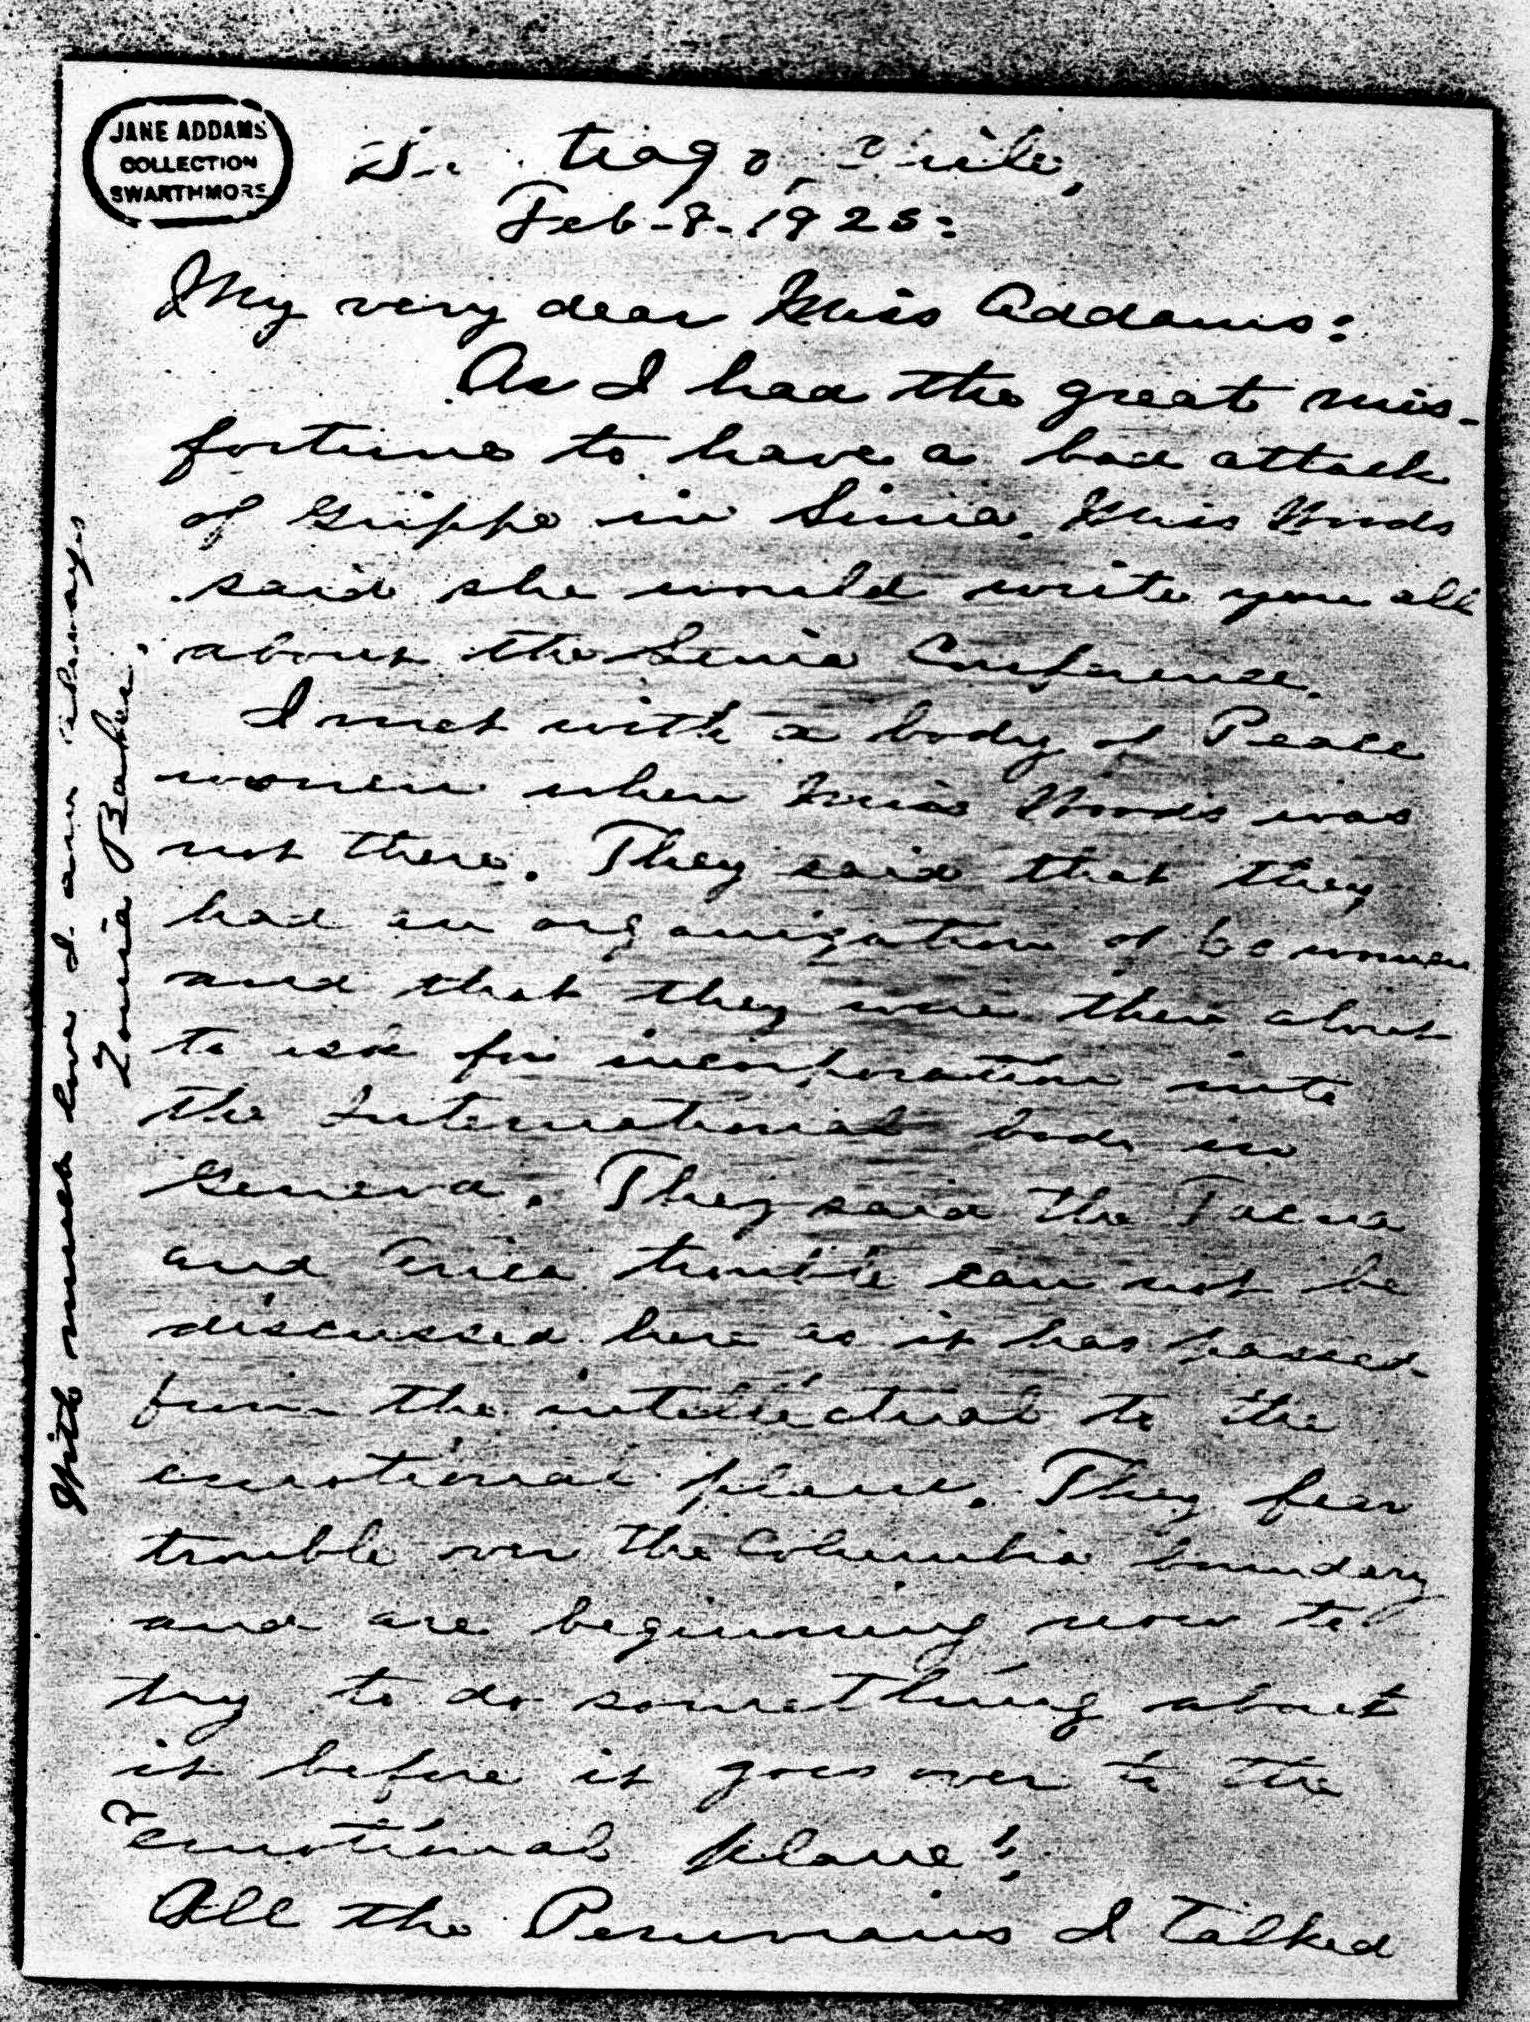 JANE ADDAMS
COLLECTION
SWARTHMORE
Santiago, Chile,
Feb-8-1925:
My very dear Miss Addams:
As I had the great mis-
fortune to have a bad attack
of Grippe in Lima, Miss Woods
said she would write you all
about the Lima Conference.
I met with a body of Peace
women when Miss Woods was
not there. They said that they
had an organization of 60 women
and that they were then about
to ask for incorporation into
the International body in
Geneva. They said the Tacna
and Arica trouble can not be
discussed here as it has passed
from the intellectual to the
emotional plane. They fear
trouble over the Columbia boundary
and are beginning now to
try to do something about
it before it goes over to the
"emotional plane".
All the Peruvians I talked
With much love I am always
Zonia Baber.